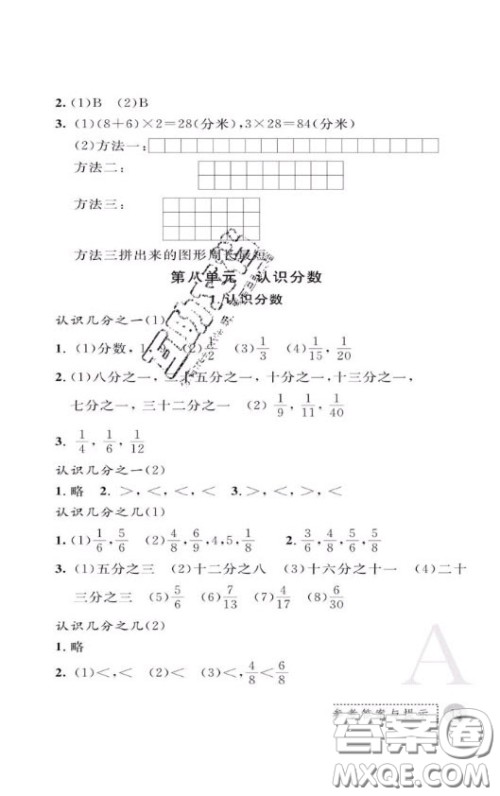 2. (1)B (2)B
3. (1)(8+6)×2=28(分米),3×28=84(分米)
(2)方法一:
方法二:
方法三:
方法三拼出来的图形周长最短
第八单元 认识分数
1.认识分数
认识几分之一(1)
1. (1)分数,1, (2)1/2 (3)1/3 (4)1/15, 1/20
2. (1)八分之一, 十五分之一,十分之一,十三分之一,
七分之一,三十二分之一 (2) 1/9, 1/11, 1/40
3. 1/4, 1/6, 1/12
认识几分之一(2)
1. 略 2. >,<,<,< 3. >,>,<,<
认识几分之几(1)
1. (1)1/6, 5/6 (2)4/8, 6/9, 4,5, 1/8 2. 3/6, 4/8, 5/8, 5/8
3. (1)五分之三 (2)十二分之八 (3)十六分之十一 (4)二十
三分之三 (5)5/6 (6)7/13 (7)4/17 (8)6/30
认识几分之几(2)
1. 略
2. (1)<,< (2)<,< (3)<, 4/8<6/8
A
参考答案与提示
答案圈
MXQE.COM